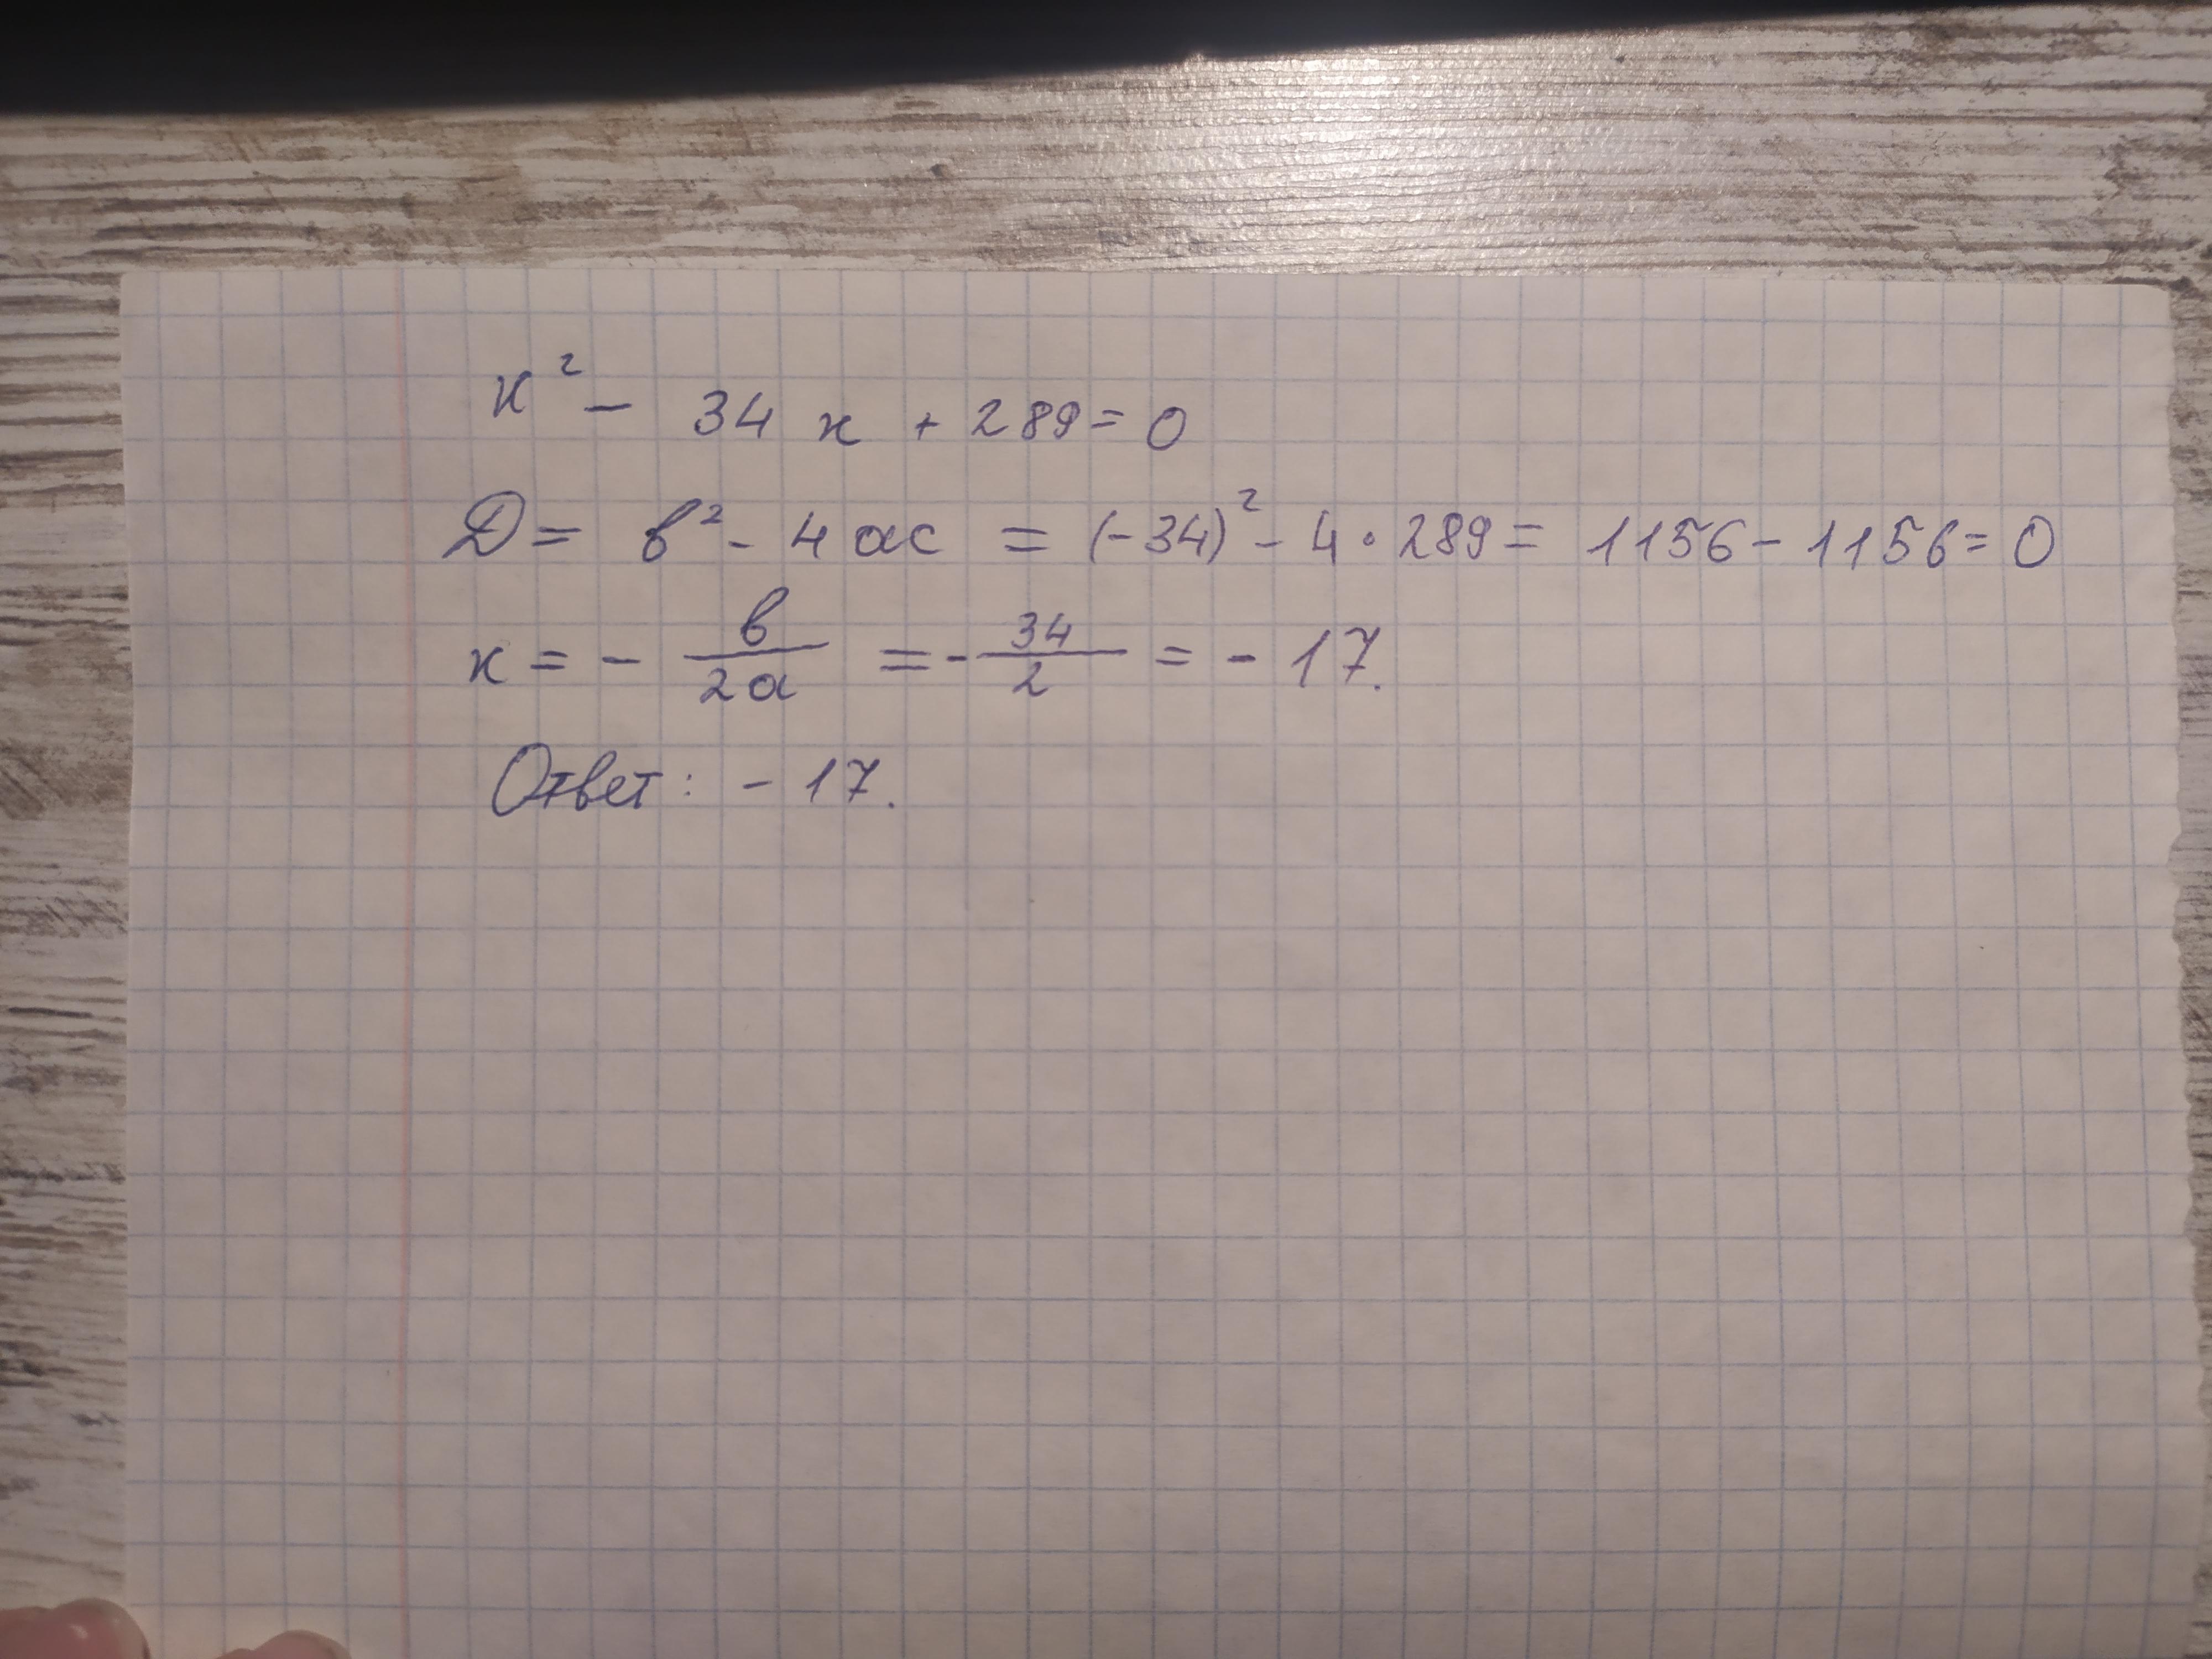 x² - 34 x + 289 = 0
D = b² - 4 ac = (-34)² - 4 · 289 = 1156 - 1156 = 0
x = - b/2a = - 34/2 = - 17.
Ответ: - 17.